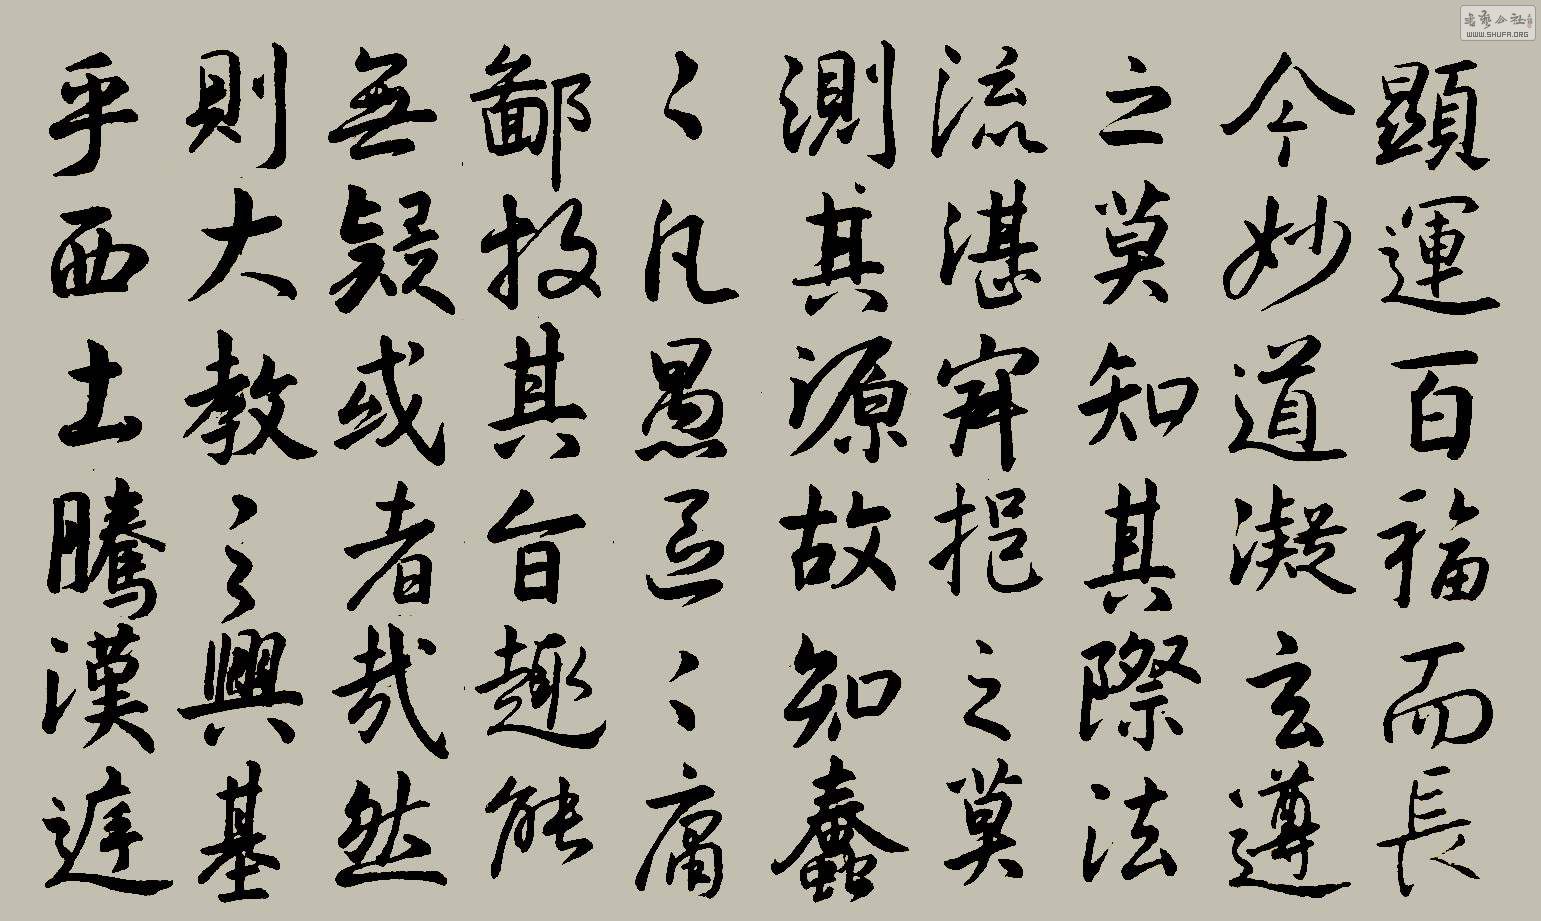 顯運百福而長
今妙道凝玄遵
之莫知其際法
流湛寂挹之莫
測其源故知蠢
〻凡愚區〻庸
鄙投其旨趣能
無疑或者哉然
則大教之興基
乎西土騰漢遲
書藝公社
WWW.SHUFA.ORG